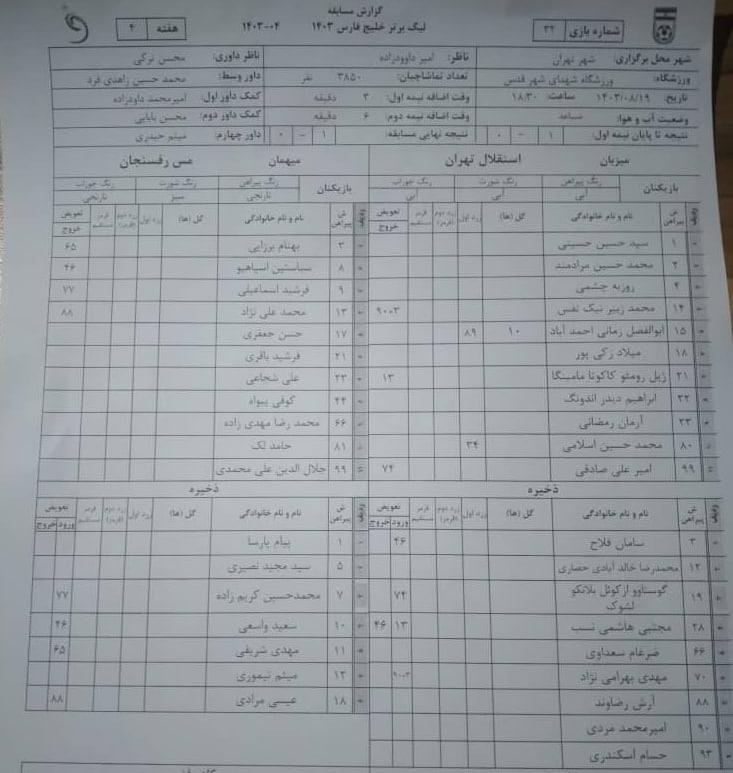 گزارش مسابقه
لیگ برتر خلیج فارس ۱۴۰۳ ۰۴-۱۴۰۳
شماره بازی ۳۲
هفته ۴
شهر محل برگزاری: شهر تهران ناظر: امیر داوودزاده ناظر داوری: محسن ترکی
ورزشگاه: ورزشگاه شهدای شهر قدس تعداد تماشاچیان: ۳۸۵۰ نفر داور وسط: محمد حسین زاهدی فرد
تاریخ: ۱۴۰۳/۰۸/۱۹ ساعت: ۱۸:۳۰ وقت اضافه نیمه اول: ۳ دقیقه کمک داور اول: امیرمحمد داودزاده
وضعیت آب و هوا: مساعد وقت اضافه نیمه دوم: ۶ دقیقه کمک داور دوم: محسن بابایی
نتیجه تا پایان نیمه اول: ۱ - ۰ نتیجه نهایی مسابقه: ۱ - ۰ داور چهارم: میثم حیدری
میزبان استقلال تهران میهمان مس رفسنجان
بازیکنان رنگ پیراهن رنگ شورت رنگ جوراب بازیکنان رنگ پیراهن رنگ شورت رنگ جوراب
آبی آبی آبی نارنجی سبز نارنجی
ردیف ش پیراهن نام و نام خانوادگی گل (ها) زرد اول زرد دوم (قرمز) قرمز مستقیم تعویض خروج ردیف ش پیراهن نام و نام خانوادگی گل (ها) زرد اول زرد دوم (قرمز) قرمز مستقیم تعویض خروج
۱ سید حسین حسینی ۳ بهنام برزایی ۶۵
۲ محمد حسین مرادمند ۸ سباستین آسیاهیو ۴۶
۴ روزبه چشمی ۹ فرشید اسماعیلی ۷۷
۱۴ محمد زبیر نیک نفس ۹۰-۳ ۱۳ محمد علی نژاد ۸۸
۱۵ ابوالفضل زمانی احمد آباد ۱۰ ۸۹ ۱۷ حسن جعفری
۱۸ میلاد زکی پور ۲۱ فرشید باقری
۲۱ ژیل رومئو کاکوتا مامبنگا ۱۳ ۲۳ علی شجاعی
۲۲ ابراهیم دیدر اندونگ ۴۴ کوفی بیواه
۲۳ آرمان رمضانی ۶۶ محمد رضا مهدی زاده
۸۰ محمد حسین اسلامی ۳۴ ۸۱ حامد لک
۹۹ امیر علی صادقی ۷۴ ۹۹ جلال الدین علی محمدی
ذخیره ذخیره
ردیف ش پیراهن نام و نام خانوادگی گل (ها) زرد اول زرد دوم (قرمز) قرمز مستقیم تعویض ورود خروج ردیف ش پیراهن نام و نام خانوادگی گل (ها) زرد اول زرد دوم (قرمز) قرمز مستقیم تعویض ورود خروج
۳ سامان فلاح ۴۶ ۱ پیام پارسا
۱۲ محمدرضا خالد آبادی حصاری ۵ سید مجید نصیری
۱۹ گوستاوو ازکوئل بلانکو لشوک ۷۴ ۷ محمدحسین کریم زاده ۷۷
۲۸ مجتبی هاشمی نسب ۱۳ ۴۶ ۱۰ سعید واسعی ۴۶
۶۶ ضرغام سعداوی ۱۱ مهدی شریفی ۶۵
۷۰ مهدی بهرامی نژاد ۹۰-۳ ۱۲ میثم تیموری
۸۸ آرش رضاوند ۱۸ عیسی مرادی ۸۸
۹۰ امیرمحمد مردی
۹۳ حسام اسکندری